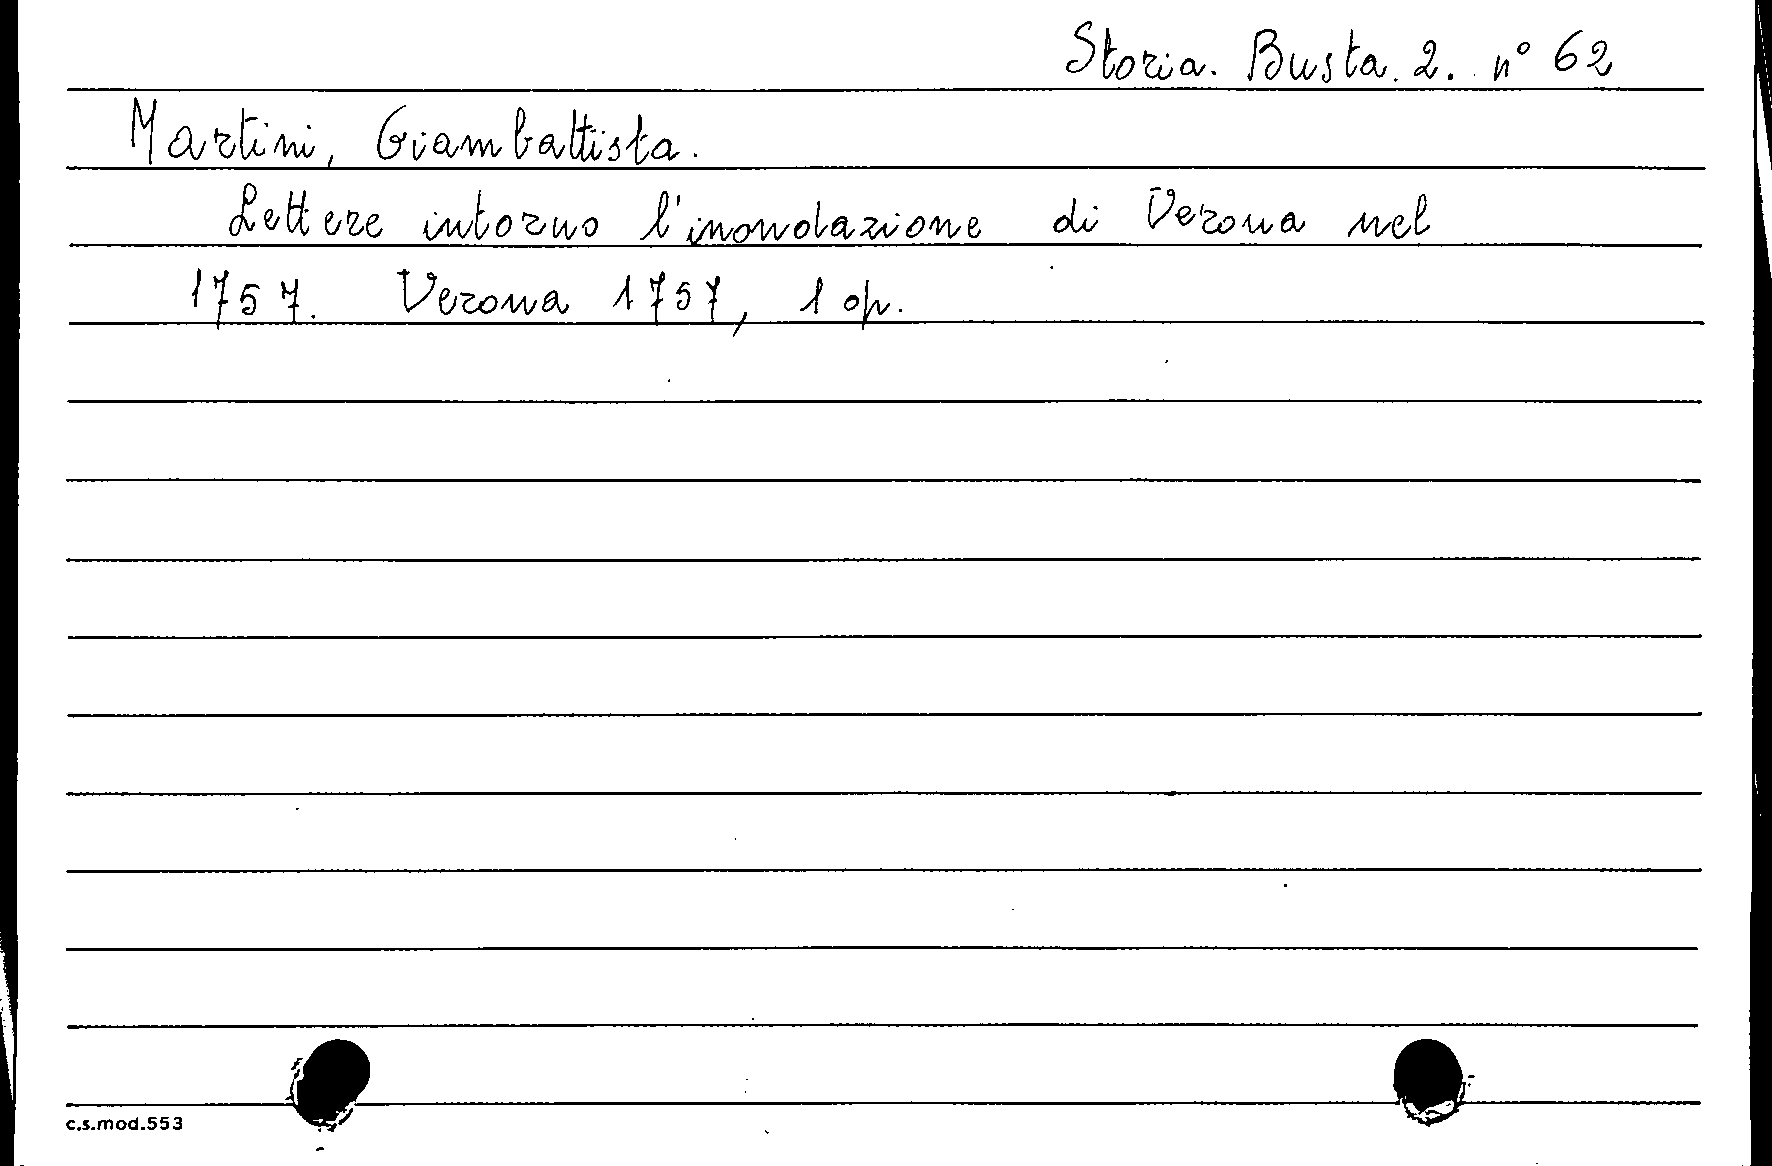 Storia. Busta. 2. n° 62
Martini, Giambattista.
Lettere intorno l'inondazione di Verona nel
1757. Verona 1757, 1 op.
c.s.mod.553